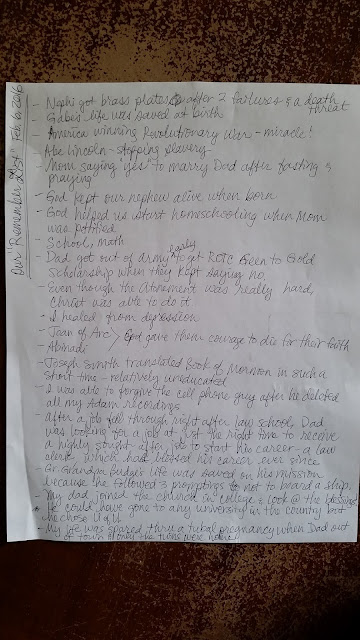 Our "Remember List" Feb 6, 2016
- Nephi got brass plates after 2 failures & a death threat
- Gabe's life was saved at birth
- America winning Revolutionary War - miracle!
- Abe Lincoln - stopping slavery
- Mom saying "yes" to marry Dad after fasting &
praying
- God kept our nephew alive when born
- God helped us start homeschooling when Mom
was petrified
- School, math
- Dad got out of army early to get ROTC Green to Gold
Scholarship when they kept saying no.
- Even though the Atonement was really hard,
Christ was able to do it
- I healed from depression
- Joan of Arc
- Abinadi > God gave them courage to die for their faith
- Joseph Smith translated Book of Mormon in such a
short time - relatively uneducated
- I was able to forgive the cell phone guy after he deleted
all my Adam recordings
- After a job fell through right after law school, Dad
was looking for a job at just the right time to receive
a highly sought-after job to start his career - a law
clerk which had blessed his career ever since
- Gr. Grandpa Budge's life was saved on his mission
because he followed 3 promptings to not to board a ship.
- My dad joined the church in college & look @ the blessings
* He could have gone to any university in the country but
he chose U of U
- My life was spared thru a tubal pregnancy when Dad out
of town & only the twins were home